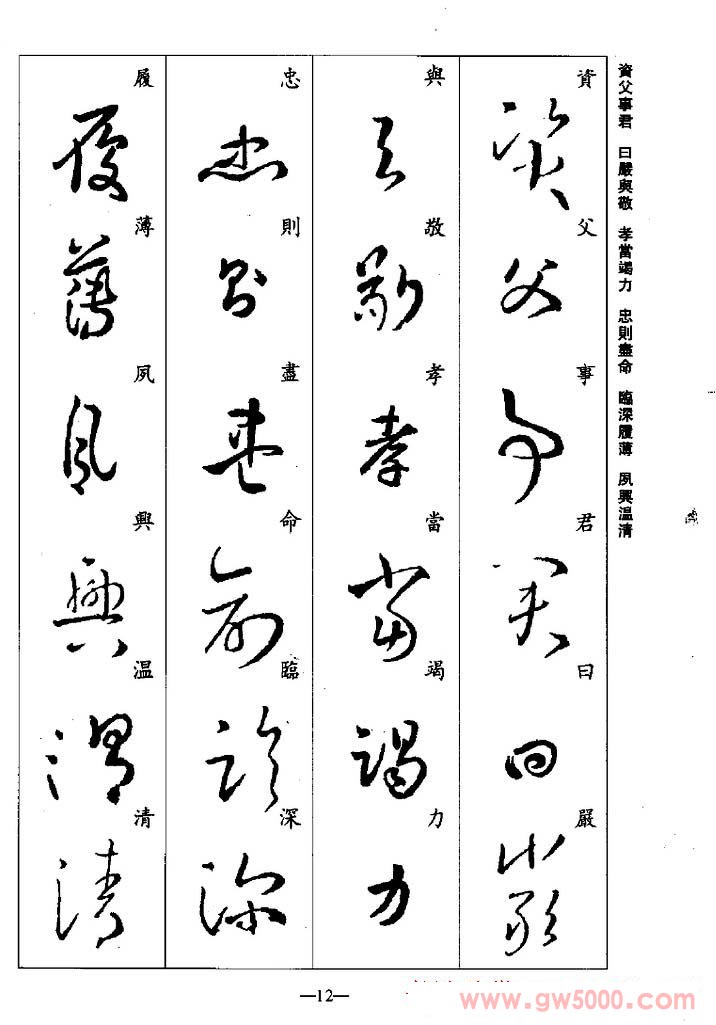 資父事君 曰嚴與敬 孝當竭力 忠則盡命 臨深履薄 夙興温清
資父事君曰嚴
與敬孝當竭力
忠則盡命臨深
履薄夙興温清
—12—
www.gw5000.com